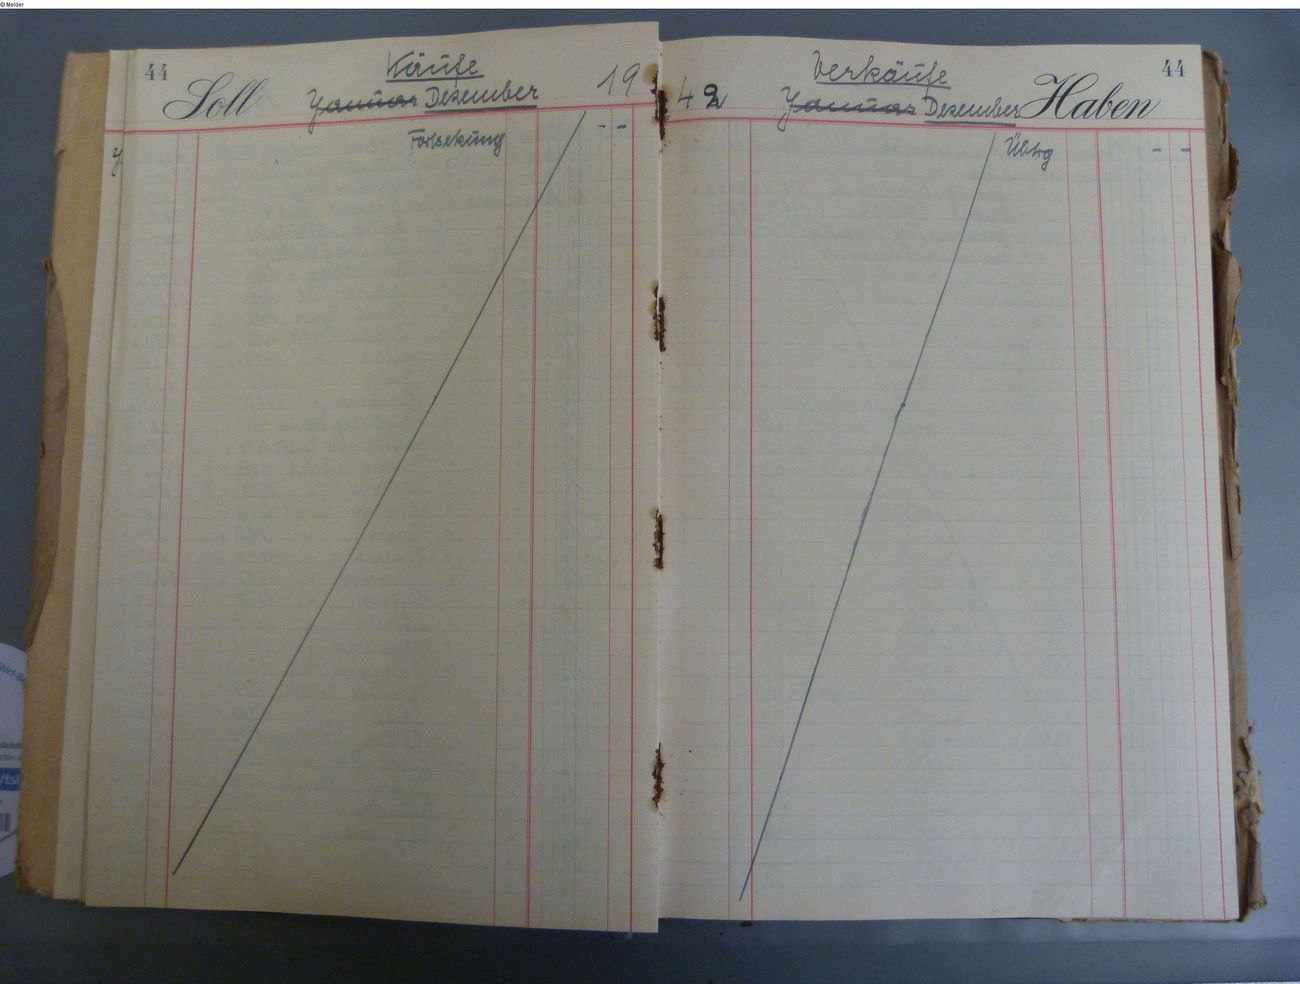 © Melder
44
Käufe
Soll
Januar Dezember
19
Fortsetzung
--
Verkäufe
44
42
Januar Dezember
Haben
Übtrg
--
/tsl